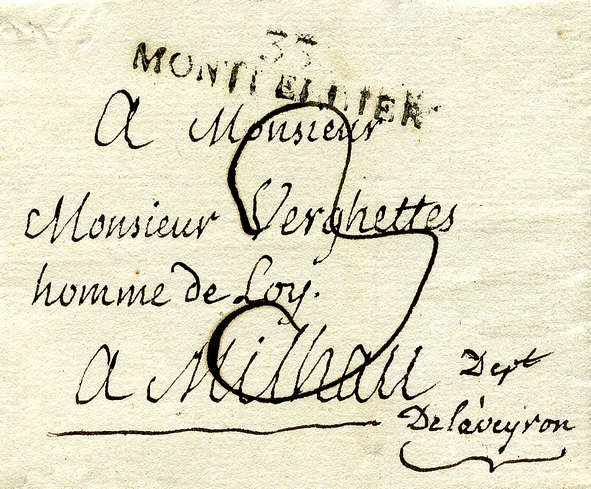 33
MONTPELLIER
A Monsieur
Monsieur Verghettes
homme de Loy.
A Milhau Dept
De l'aveyron
3